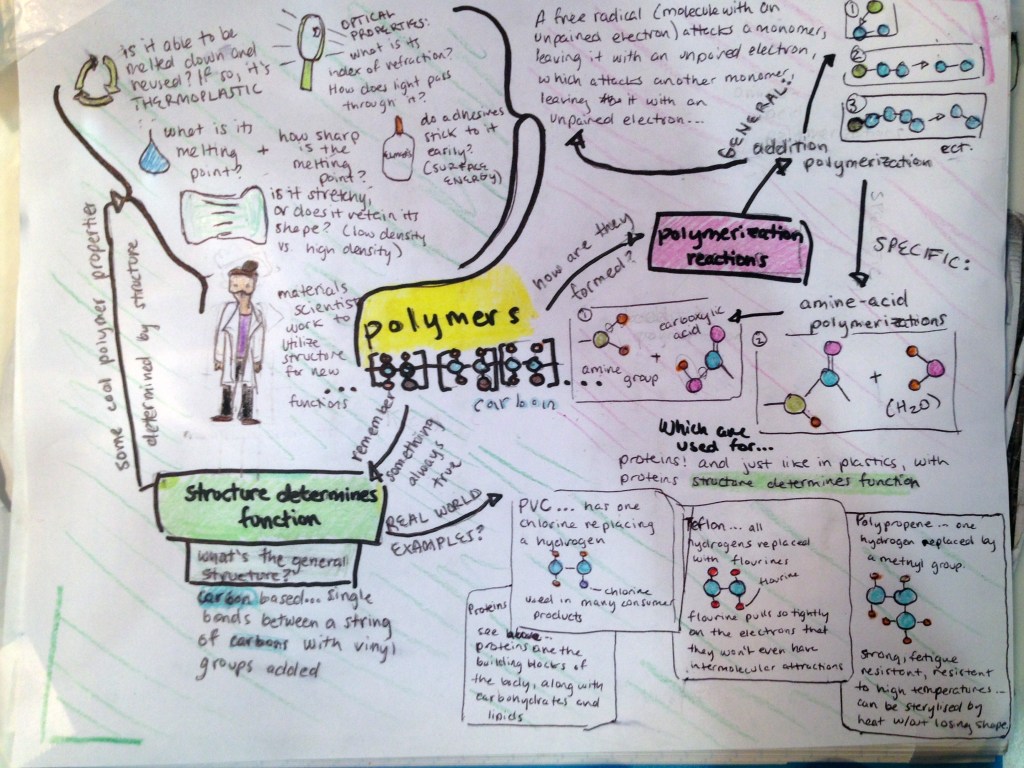 is it able to be
melted down and
reused? If so, it's
THERMOPLASTIC
OPTICAL
PROPERTIES:
what is its
index of refraction?
How does light pass
through it?
what is its
melting
point?
+
how sharp
is the
melting
point?
do adhesives
stick to it
easily?
(SURFACE
ENERGY)
is it stretchy,
or does it retain its
shape? (low density
vs. high density)
materials
scientists
work to
utilize
structure
for new
functions
some cool polymer properties
determined by structure
polymers
...
....
carbon
how are they
formed?
polymerization
reactions
A free radical (molecule with an
unpaired electron) attacks a monomer,
leaving it with an unpaired electron,
which attacks another monomer,
leaving it with an
unpaired electron...
GENERAL:
addition
polymerization
1
2
3
ect.
SPECIFIC:
amine-acid
polymerizations
1
carboxylic
acid
+
amine group
2
+
(H2O)
Which are
used for...
proteins! and just like in plastics, with
proteins structure determines function
remember
something
always
true
structure determines
function
what's the general
structure?
carbon based... single
bonds between a string
of carbons with vinyl
groups added
REAL WORLD
EXAMPLES?
PVC... has one
chlorine replacing
a hydrogen
chlorine
used in many consumer
products
Proteins
see above...
proteins are the
building blocks of
the body, along with
carbohydrates and
lipids
Teflon... all
hydrogens replaced
with flourines
flourine
flourine pulls so tightly
on the electrons that
they won't even have
intermolecular attractions
Polypropene... one
hydrogen replaced by
a methyl group.
Strong, fetigue
resistant, resistant
to high temperatures...
can be sterylised by
heat w/out losing shape